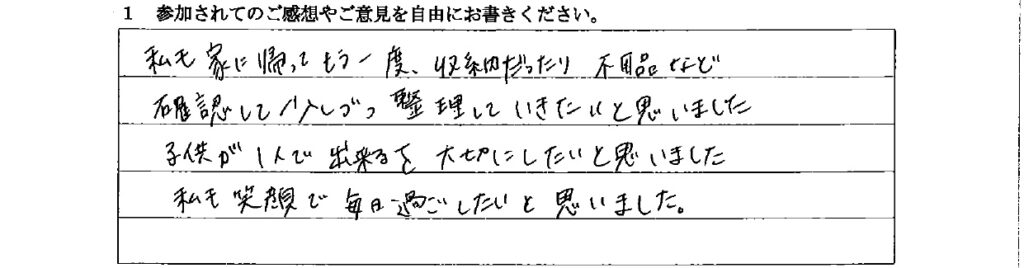 1 参加されてのご感想やご意見を自由にお書きください。
私も家に帰ってもう一度、収納だったり不用品など
確認して少しづつ整理していきたいと思いました
子供が1人で出来るを大切にしたいと思いました
私も笑顔で毎日過ごしたいと思いました。